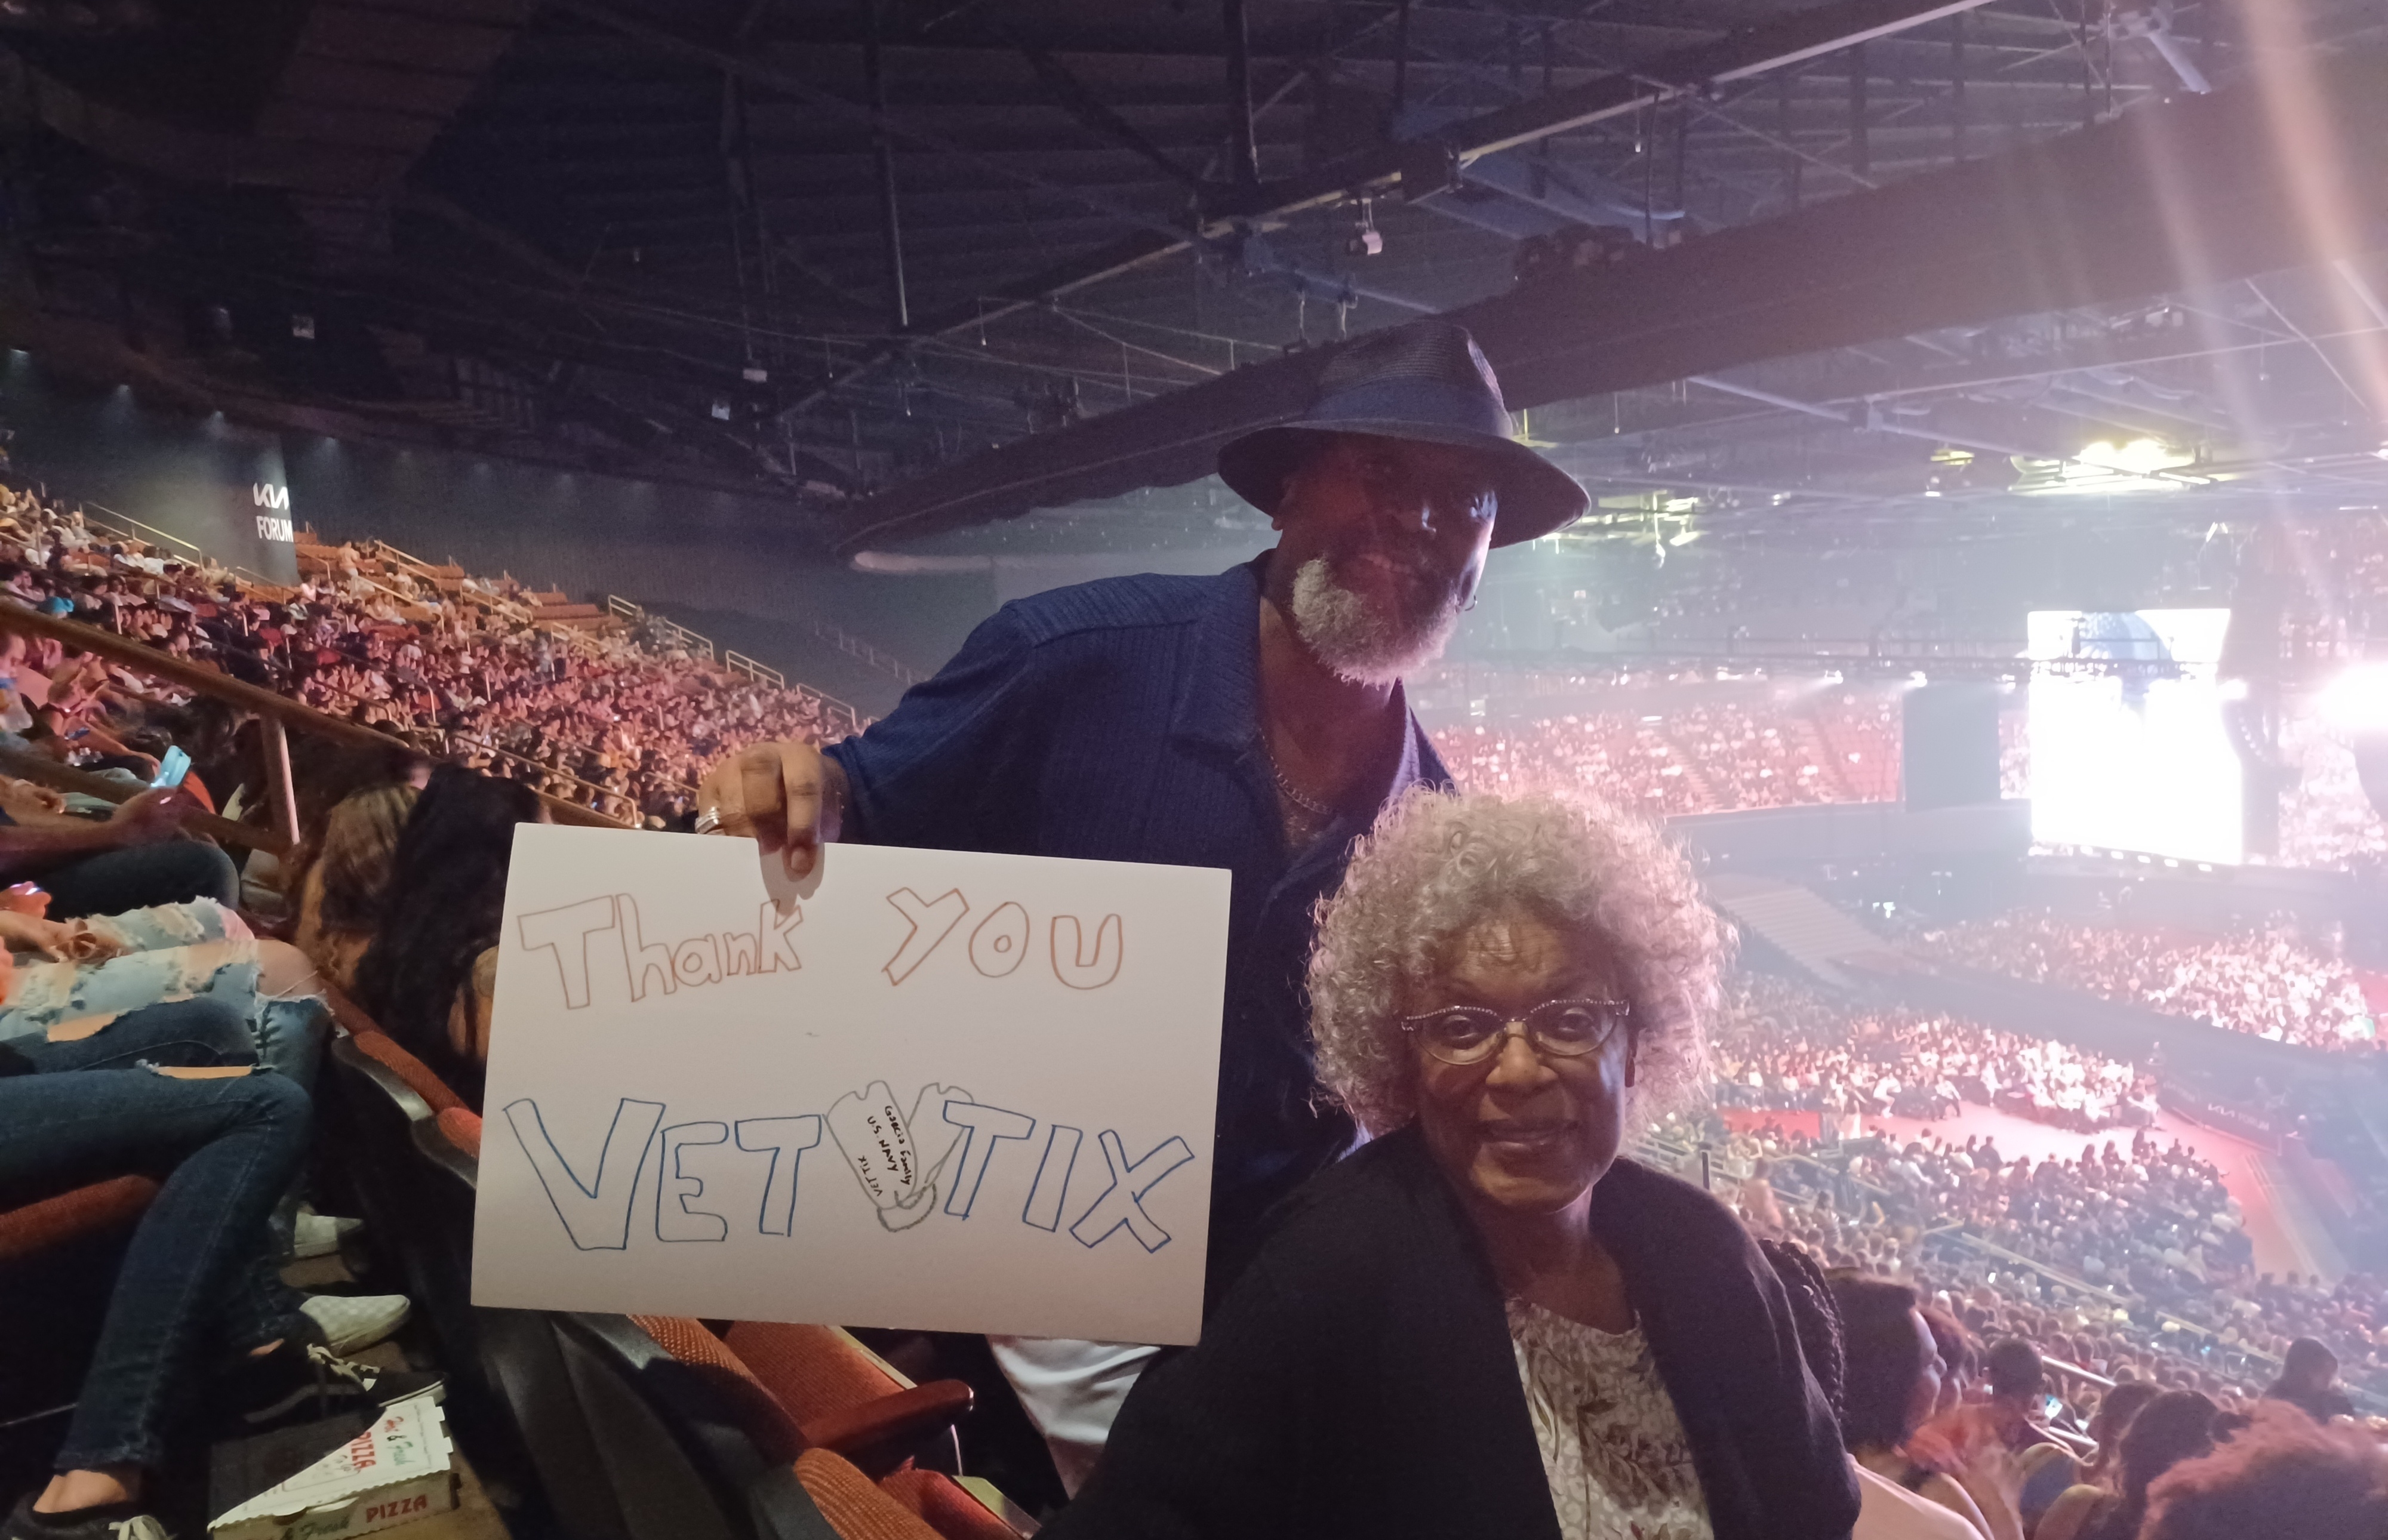 KIA
FORUM
Thank YOU
VET TIX
Garcia Family
U.S. NAVY
VET TIX
Hot & Fresh
PIZZA
& Fresh PIZZA